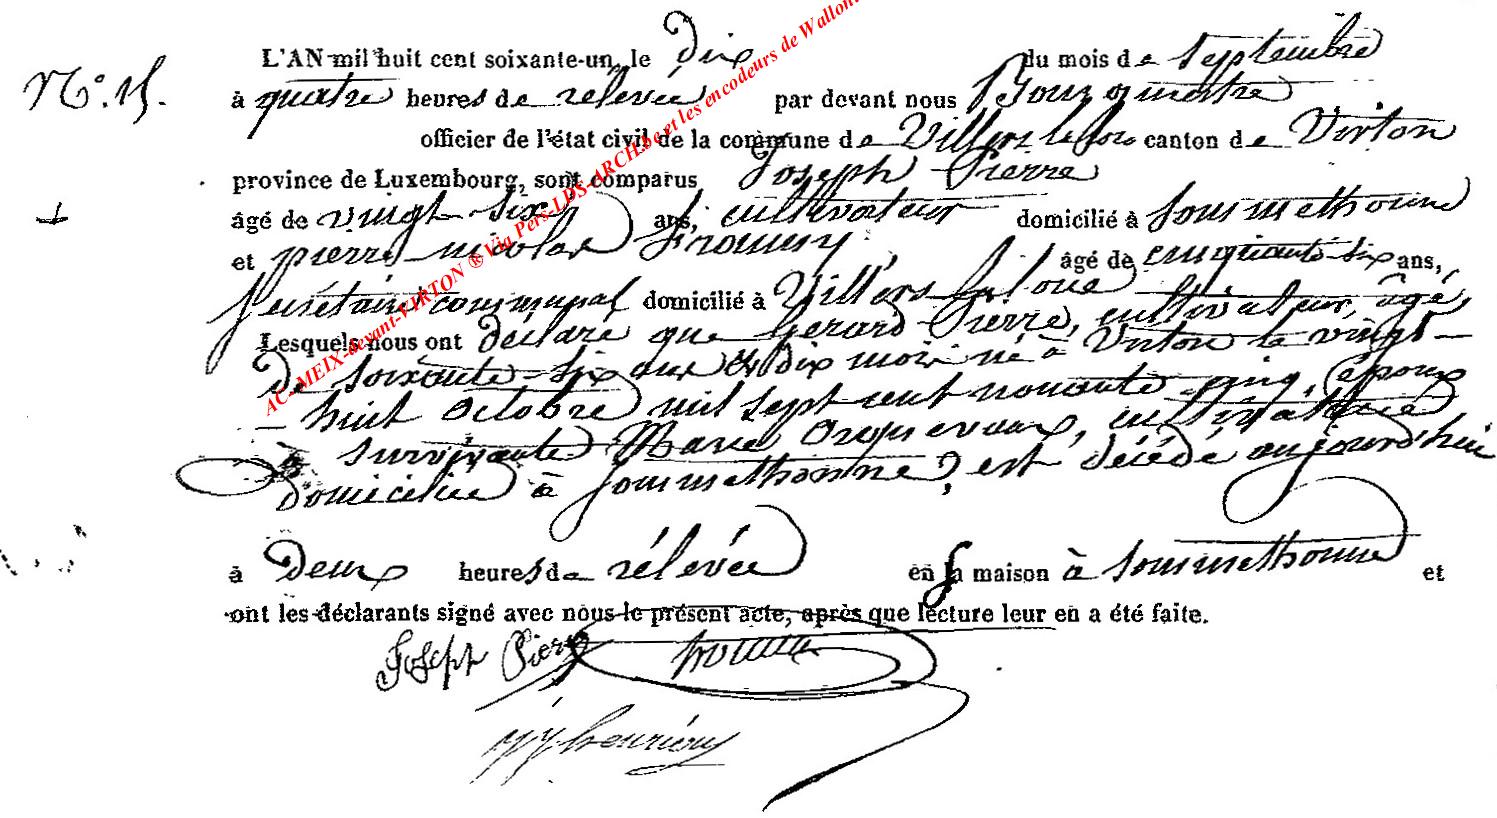 L'AN mil huit cent soixante-un, le dix du mois de Septembre
N°. 15. à quatre heures de relevée par devant nous Bourgmestre
officier de l'état civil de la commune de Villers la loue canton de Virton
province de Luxembourg, sont comparus Joseph Pierre
âgé de vingt-six ans, cultivateur domicilié à Sommethonne
et pierre nicolas âgé de cinquante-six ans,
Secrétaire communal domicilié à Villers la loue
Lesquels nous ont déclaré que Gerard Pierre, cultivateur, âgé
De soixante-six ans et dix mois né à Virton le vingt-
huit Octobre mil sept cent nonante-cinq, époux
à survivante Marie cultivatrice
domiciliée à Sommethonne, est décédé aujourd'hui
à Deux heures de rélevée en sa maison à Sommethonne et
ont les déclarants signé avec nous le présent acte, après que lecture leur en a été faite.
Joseph Pierre
AC-MEIX-devant-VIRTON ® Via Pers-LDS-ARCH.be et les encodeurs de Wallon